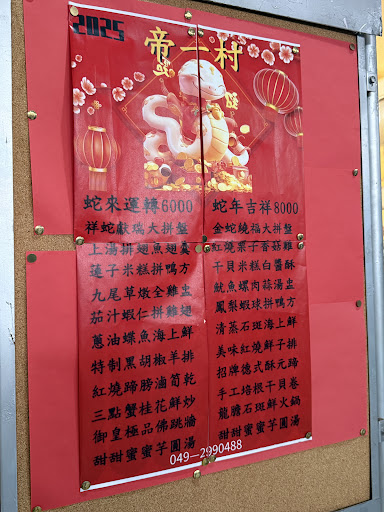 2025
帝一村
蛇來運轉6000
祥蛇獻瑞大拼盤
上湯排翅魚翅羹
蓮子米糕拼鴨方
九尾草燉全雞盅
茄汁蝦仁拼雞翅
蔥油蝶魚海上鮮
特制黑胡椒羊排
紅燒蹄膀滷筍乾
三點蟹桂花鮮炒
御皇極品佛跳牆
甜甜蜜蜜芋圓湯
蛇年吉祥8000
金蛇繞福大拼盤
紅燒栗子香菇雞
干貝米糕白醬酥
魷魚螺肉蒜湯盅
鳳梨蝦球拼鴨方
清蒸石斑海上鮮
美味紅燒鮮子排
招牌德式酥元蹄
手工培根干貝卷
龍膽石斑鮮火鍋
甜甜蜜蜜芋圓湯
049-2990488